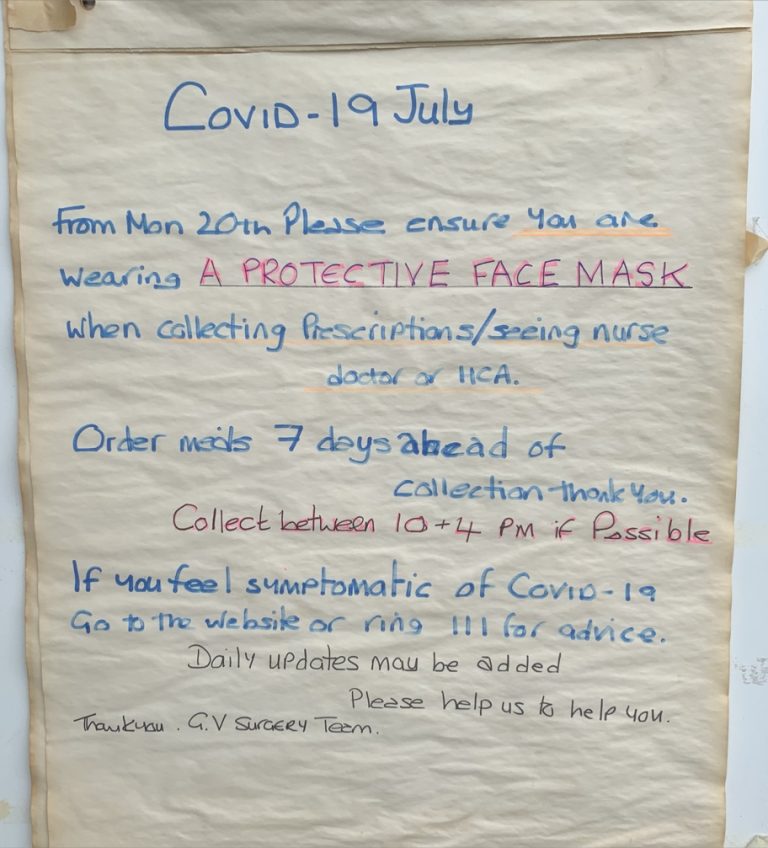 Covid-19 July
From Mon 20th Please ensure you are
wearing A PROTECTIVE FACE MASK
when collecting Prescriptions/seeing nurse
doctor or HCA.
Order meds 7 days ahead of
collection thank you.
Collect between 10+4 PM if Possible
If you feel symptomatic of Covid-19
Go to the website or ring 111 for advice.
Daily updates may be added
Please help us to help you.
Thankyou. G.V SURGERY Team.